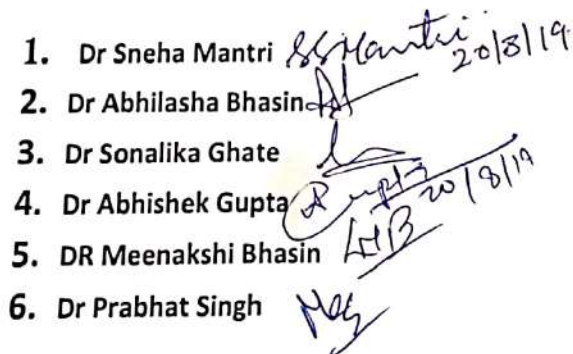 1. Dr Sneha Mantri SSMantri 20/8/19
2. Dr Abhilasha Bhasin
3. Dr Sonalika Ghate
4. Dr Abhishek Gupta A Gupta 20/8/19
5. DR Meenakshi Bhasin
6. Dr Prabhat Singh